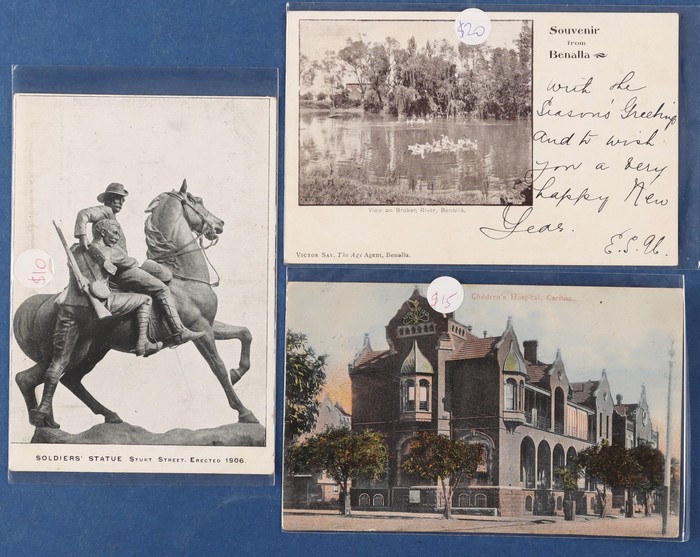 $20
Souvenir
from
Benalla
With the
Season's Greeting
And to wish
You a very
happy New
Year.
View on Broken River, Benalla.
Victor Say, The Age Agent, Benalla.
$10
SOLDIERS' STATUE STURT STREET. ERECTED 1906.
$15
Children's Hospital, Carlton.